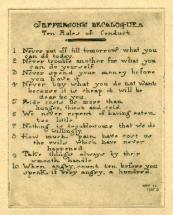 JEFFERSON'S DECALOGUE
Ten Rules of Conduct
1 Never put off till tomorrow what you
can do today
2 Never trouble another for what you
can do yourself
3 Never spend your money before
you have it
4 Never buy what you do not want
because it is cheap it will be
dear to you
5 Pride costs us more than
hunger, thirst and cold
6 We never repent of having eaten
too little
7 Nothing is troublesome that we do
willingly
8 How much pain have cost us
the evils which have never
happened
9 Take things always by their
smooth handle
10 When angry, count ten before you
speak if very angry, a hundred.